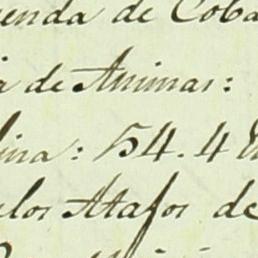 enda de Coba
a de Animas:
ina: 54.4
los Atafos de